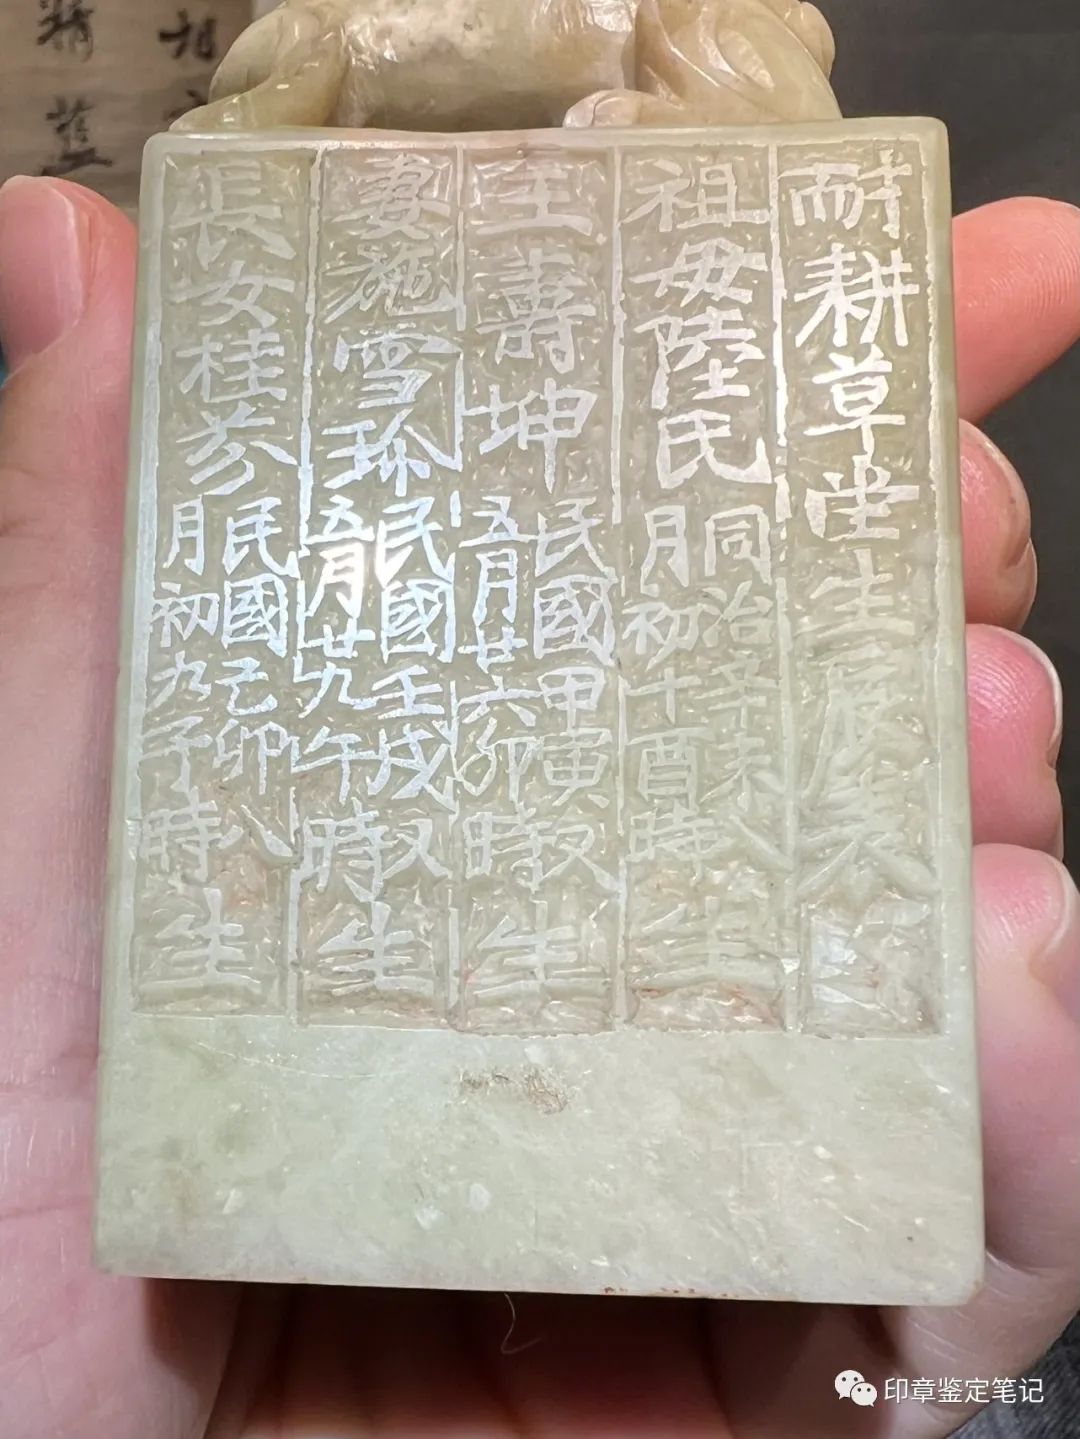 耐耕草堂生
祖母陸氏同治辛未八月初十酉時生
王壽坤民國甲寅又五月廿六卯時生
妻施雪珎民國壬戌又五月廿九午時生
長女桂芬民國己卯八月初九子時生
印章鉴定笔记